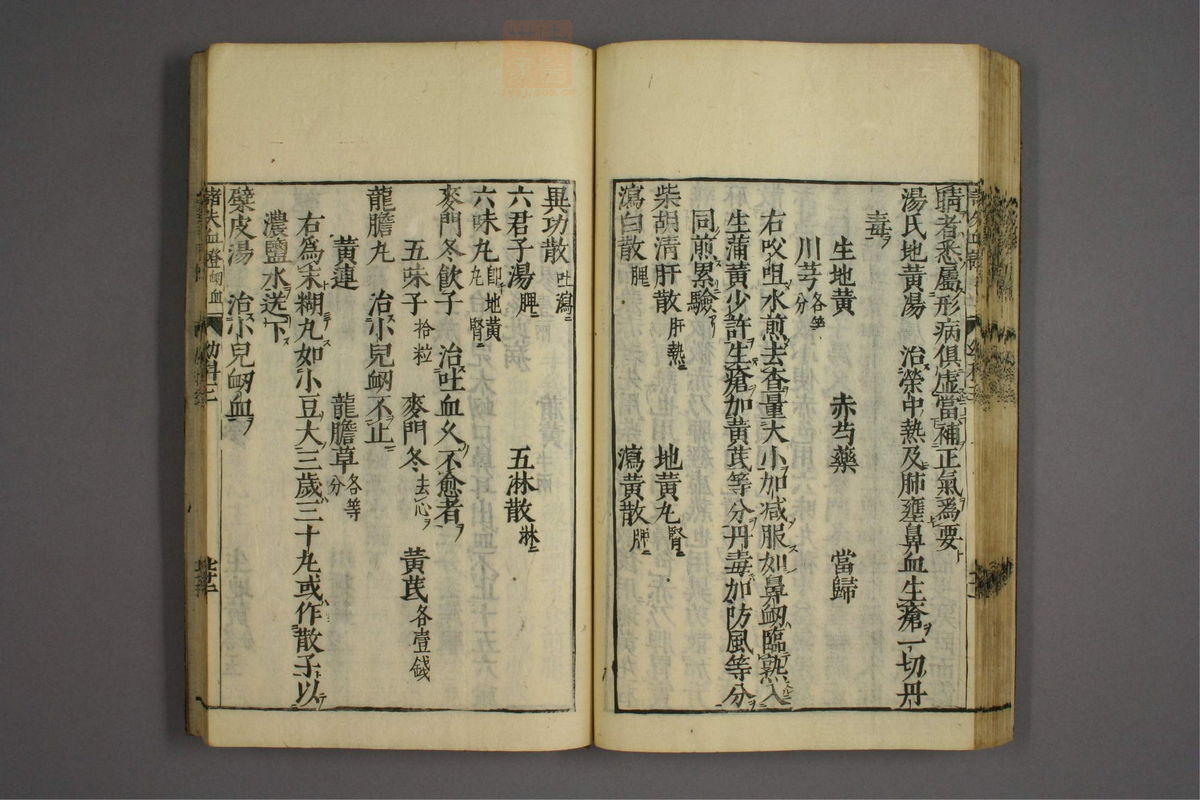 睛者悉屬形病俱虛當補正氣爲要
湯氏地黃湯 治榮中熱及肺壅鼻血生瘡一切丹
毒
生地黃 赤芍藥 當歸
川芎各等分
右㕮咀水煎去渣量大小加减服如鼻衂臨熟入
生蒲黃少許生瘡加黃芪等分丹毒加防風等分
同煎累驗
柴胡清肝散肝熱 地黃丸腎
瀉白散脾 瀉黃散脾
異功散吐瀉
六君子湯脾 五淋散淋
六味丸即地黃丸腎
麥門冬飲子 治吐血久不愈者
五味子拾粒 麥門冬去心 黃芪各壹錢
龍膽丸 治小兒衂不止
黃連 龍膽草各等分
右爲末糊丸如小豆大三歲三十丸或作散子以
濃鹽水送下
檗皮湯 治小兒衂血
諸失血證衂血 幼科三